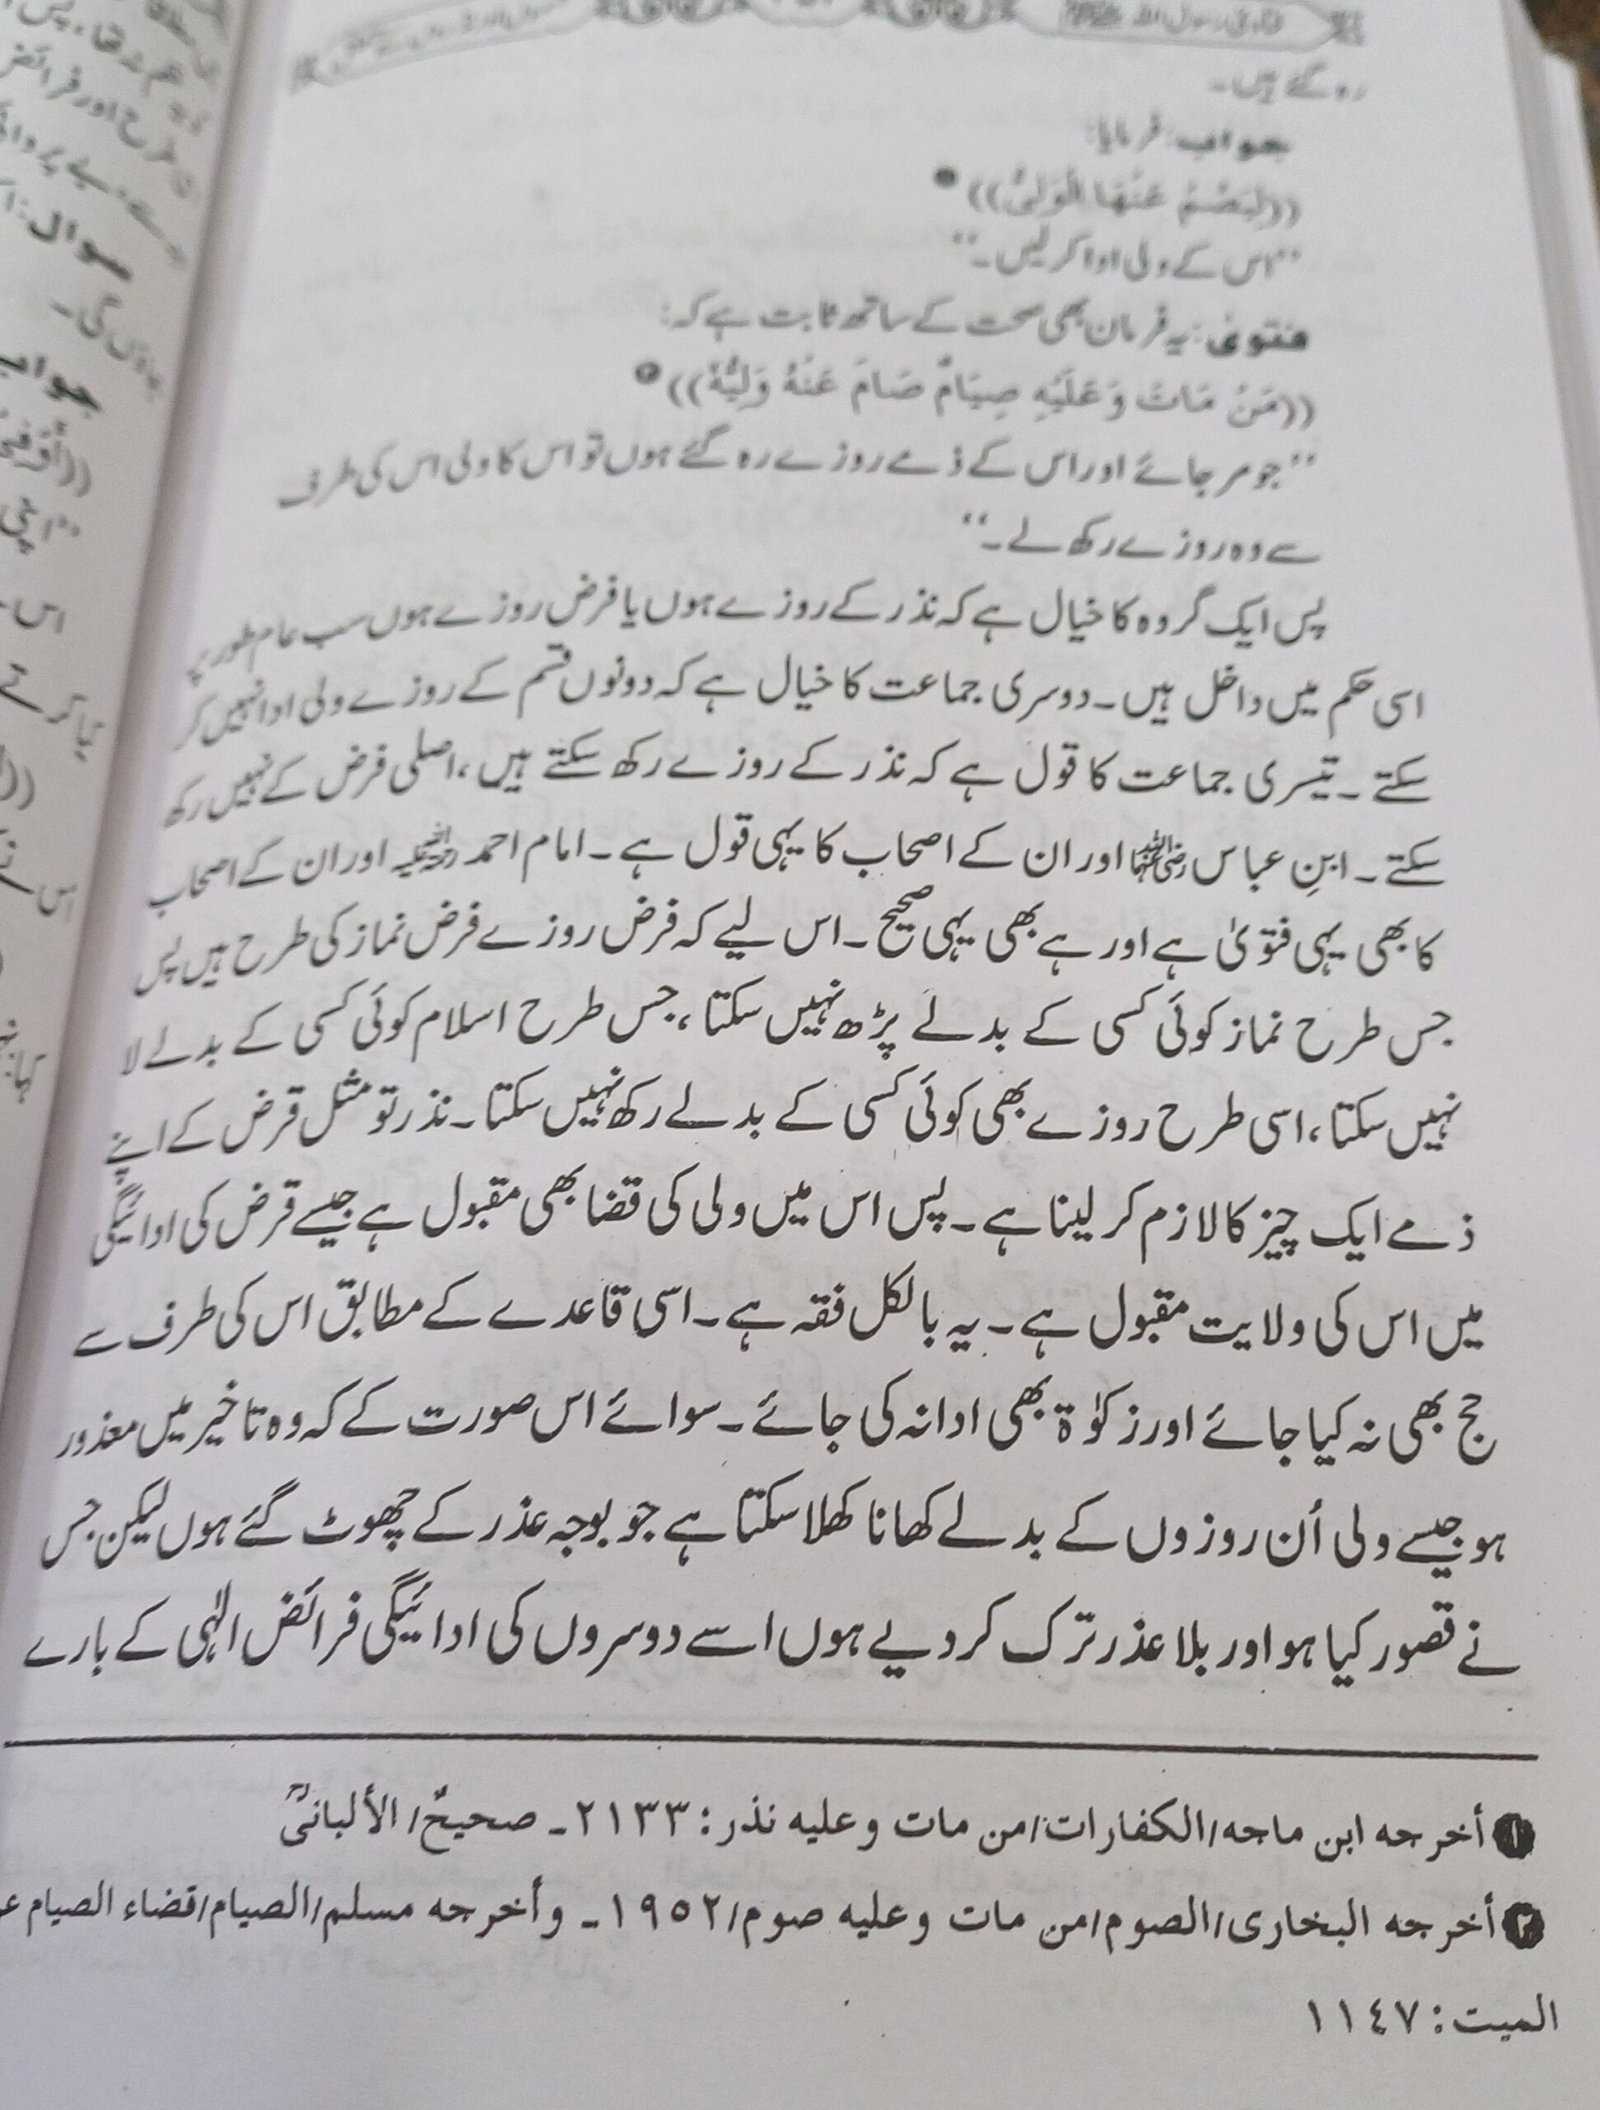 فتاویٰ رسول اللہ ﷺ
رہ گئے ہیں۔
جواب: فرمایا:
((لِیَصُمْ عَنْهَا الْوَلِیُّ)) ❶
’’اس کے ولی ادا کر لیں۔‘‘
فتویٰ: یہ فرمان بھی صحت کے ساتھ ثابت ہے کہ:
((مَنْ مَاتَ وَعَلَیْهِ صِیَامٌ صَامَ عَنْهُ وَلِیُّهُ)) ❷
’’جو مر جائے اور اس کے ذمے روزے رہ گئے ہوں تو اس کا ولی اس کی طرف
سے وہ روزے رکھ لے۔‘‘
پس ایک گروہ کا خیال ہے کہ نذر کے روزے ہوں یا فرض روزے ہوں سب عام طور پر
اسی حکم میں داخل ہیں۔ دوسری جماعت کا خیال ہے کہ دونوں قسم کے روزے ولی ادا نہیں کر
سکتے۔ تیسری جماعت کا قول ہے کہ نذر کے روزے رکھ سکتے ہیں، اصلی فرض کے نہیں رکھ
سکتے۔ ابنِ عباس رضی اللہ عنہما اور ان کے اصحاب کا یہی قول ہے۔ امام احمد رحمۃ اللہ علیہ اور ان کے اصحاب
کا بھی یہی فتویٰ ہے اور ہے بھی یہی صحیح۔ اس لیے کہ فرض روزے فرض نماز کی طرح ہیں پس
جس طرح نماز کوئی کسی کے بدلے پڑھ نہیں سکتا، جس طرح اسلام کوئی کسی کے بدلے لا
نہیں سکتا، اسی طرح روزے بھی کوئی کسی کے بدلے رکھ نہیں سکتا۔ نذر تو مثل قرض کے اپنے
ذمے ایک چیز کا لازم کر لینا ہے۔ پس اس میں ولی کی قضا بھی مقبول ہے جیسے قرض کی ادائیگی
میں اس کی ولایت مقبول ہے۔ یہ بالکل فقہ ہے۔ اسی قاعدے کے مطابق اس کی طرف سے
حج بھی نہ کیا جائے اور زکوٰۃ بھی ادا نہ کی جائے۔ سوائے اس صورت کے کہ وہ تاخیر میں معذور
ہو جیسے ولی اُن روزوں کے بدلے کھانا کھلا سکتا ہے جو بوجہ عذر کے چھوٹ گئے ہوں لیکن جس
نے قصور کیا ہو اور بلا عذر ترک کر دیے ہوں اسے دوسروں کی ادائیگی فرائض الٰہی کے بارے
❶ أخرجه ابن ماجه/الكفارات/من مات وعليه نذر: ٢١٣٣۔ صحيحٌ/الألبانىؒ
❷ أخرجه البخارى/الصوم/من مات وعليه صوم/١٩٥٢۔ وأخرجه مسلم/الصيام/قضاء الصيام
الميت: ١١٤٧